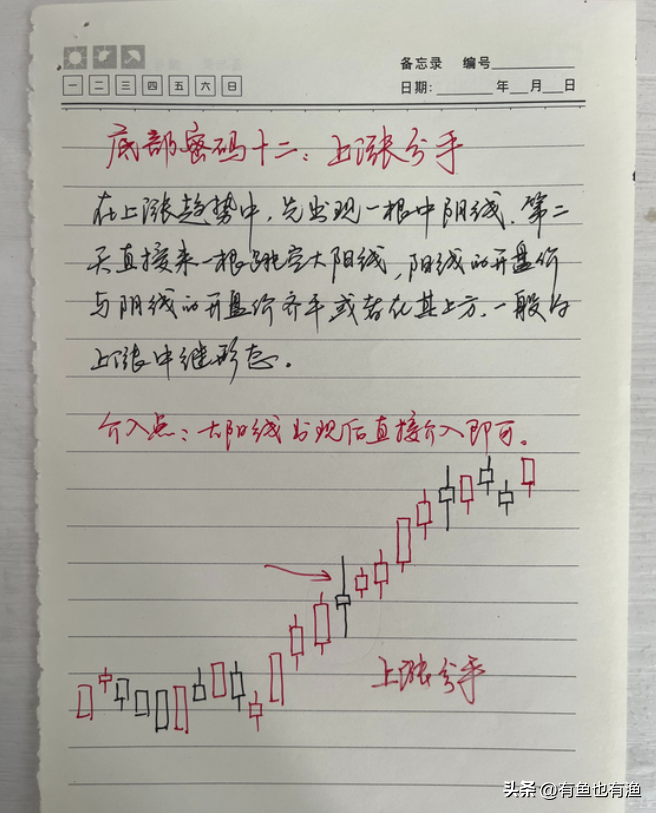 备忘录 编号
一 二 三 四 五 六 日
日期: 年 月 日
底部密码十二：上涨分手
在上涨趋势中，先出现一根中阴线，第二
天直接来一根跳空大阳线，阳线的开盘价
与阴线的开盘价齐平或者在其上方，一般为
上涨中继形态。
介入点：大阳线出现后直接介入即可。
上涨分手
头条 @有鱼也有渔